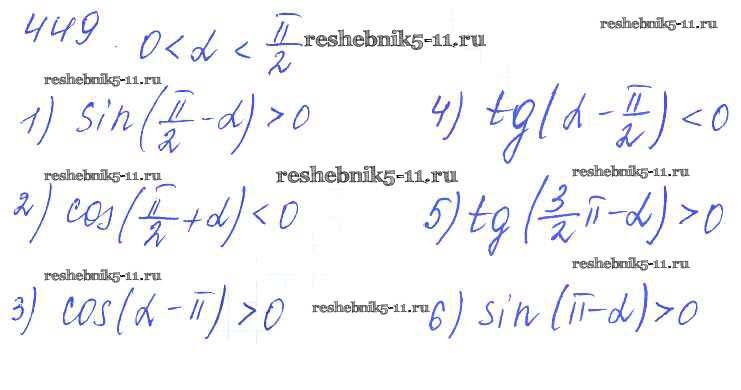 449. 0 < α < π/2
reshebnik5-11.ru
reshebnik5-11.ru
reshebnik5-11.ru
1) sin(π/2 - α) > 0
4) tg(α - π/2) < 0
reshebnik5-11.ru
reshebnik5-11.ru
reshebnik5-11.ru
2) cos(π/2 + α) < 0
5) tg(3/2 π - α) > 0
reshebnik5-11.ru
reshebnik5-11.ru
3) cos(α - π) > 0
reshebnik5-11.ru
6) sin(π - α) > 0